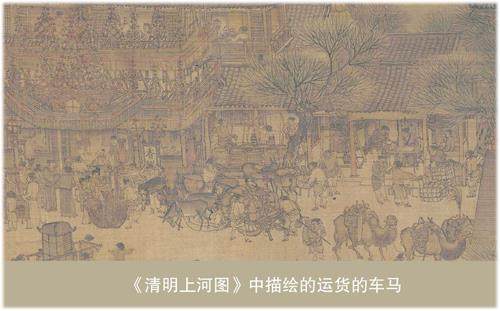 《清明上河图》中描绘的运货的车马